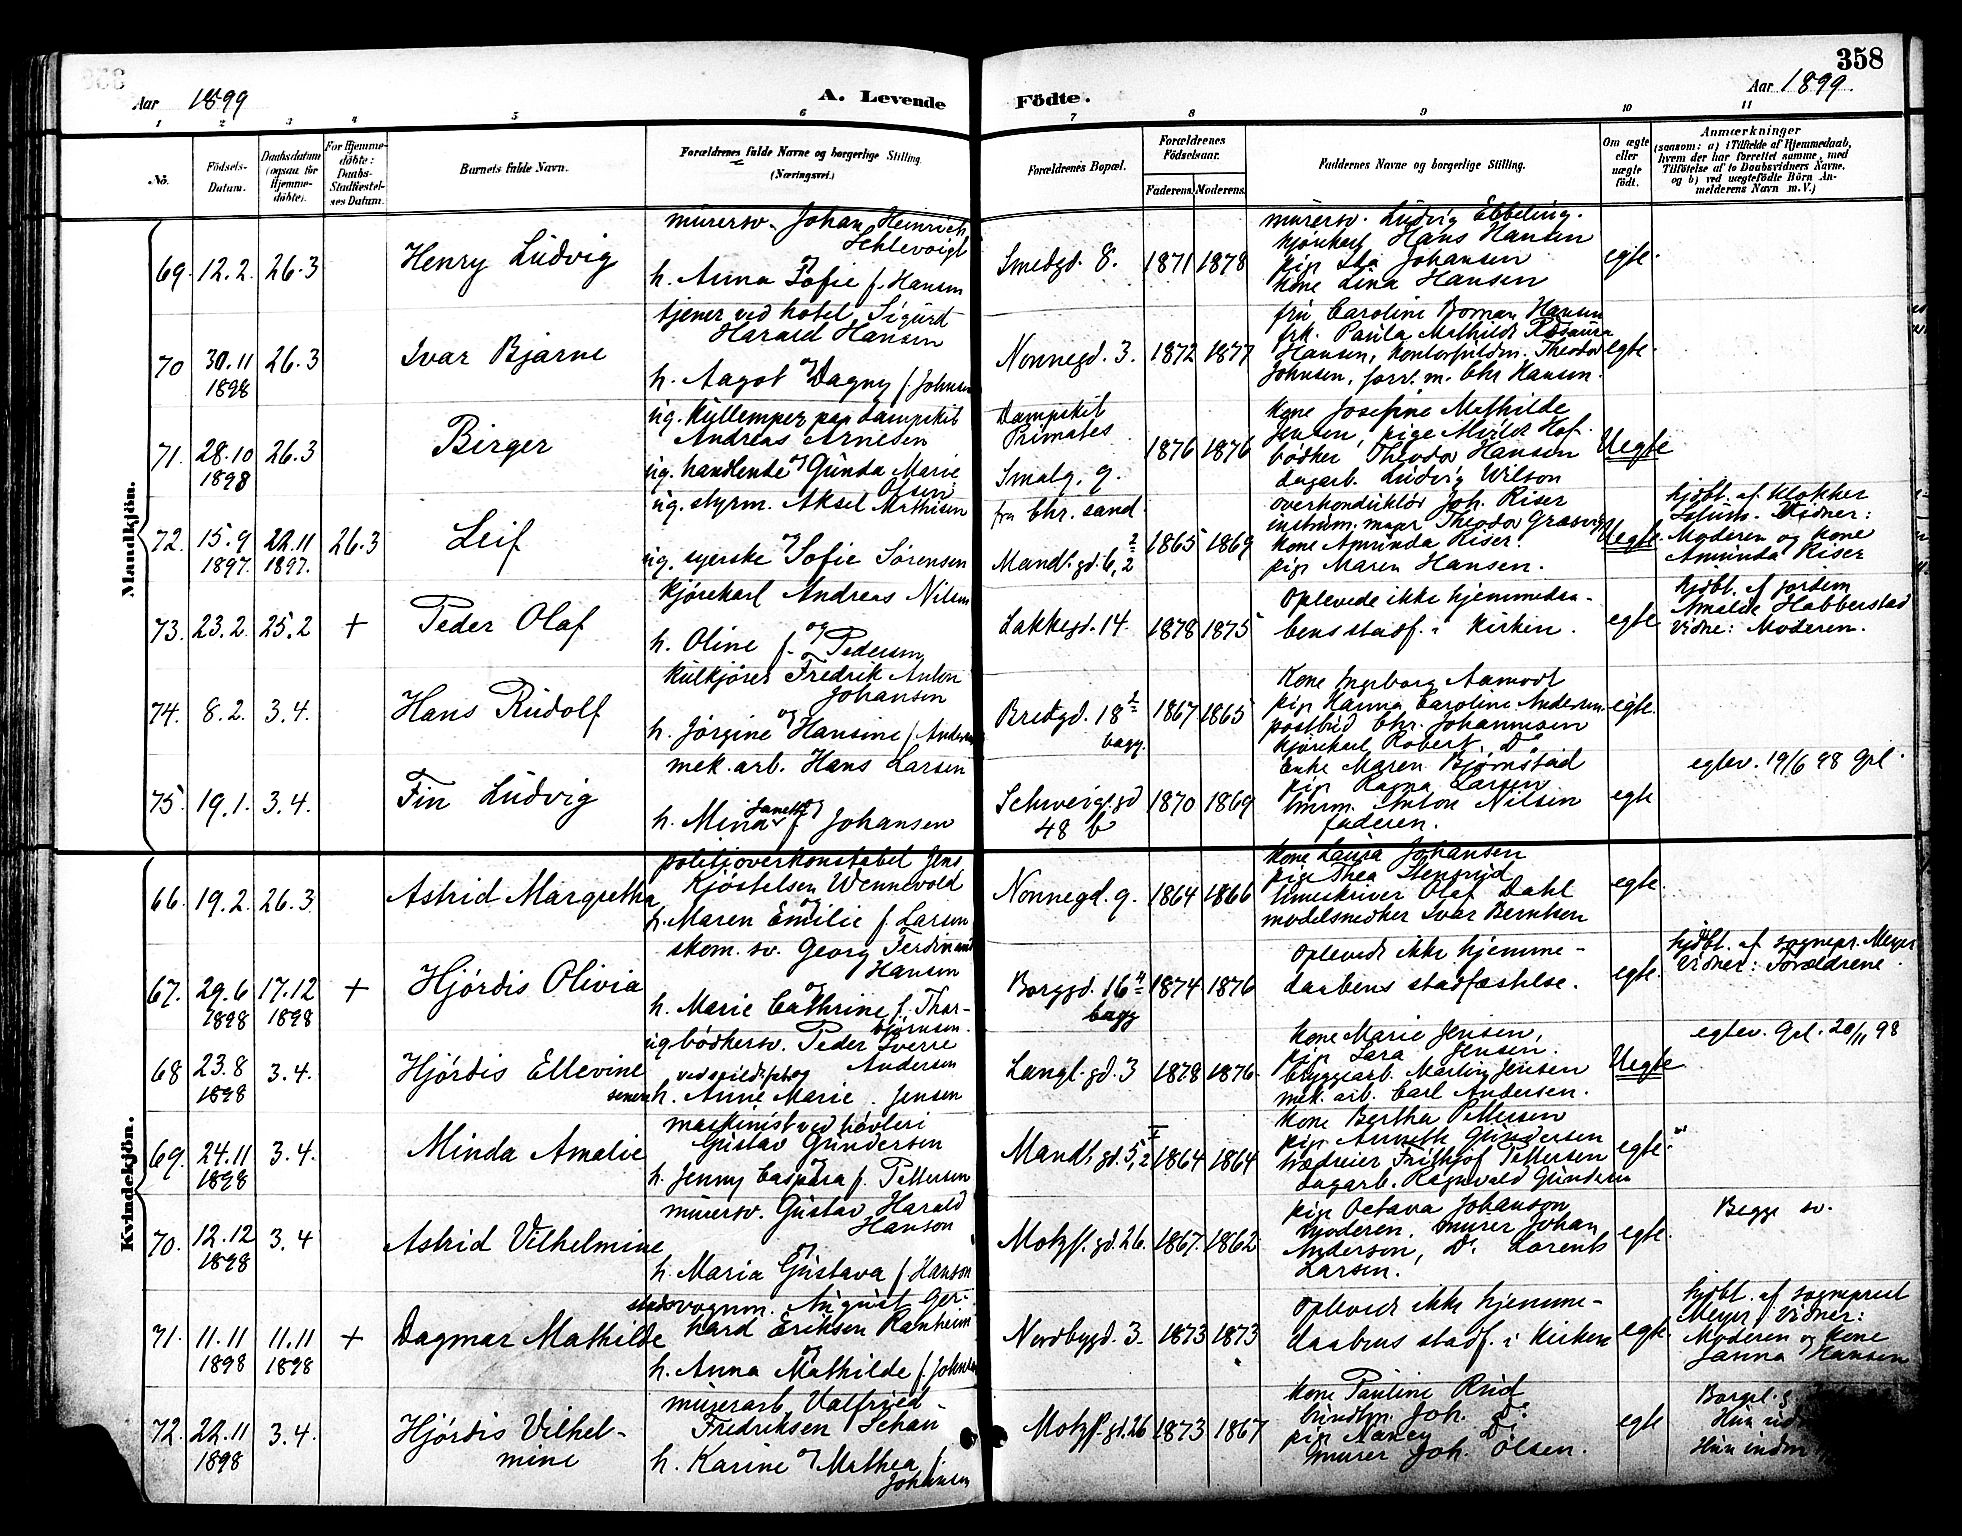 358
Aar 1899
A. Levende
Födte.
Aar 1899.
1 2 3 4 5 6 7 8 9 10 11
No.
Födsels-Datum.
Daabsdatum (ogsaa for Hjemme-döbte).
For Hjemme-döbte: Daabs-Stadfæstel-ses Datum.
Barnets fulde Navn.
Forældrenes fulde Navne og borgerlige Stilling. (Næringsvei.)
Forældrenes Bopæl.
Forældrenes Födselsaar.
Faderens. Moderens.
Faddernes Navne og borgerlige Stilling.
Om ægte eller uægte födt.
Anmærkninger
(saasom: a) i Tilfælde af Hjemmedaab, hvem der har forrettet samme, med Tilföielse af to Daabsvidners Navne, og b) ved uægtefödte Börn An-melderens Navn m. V.)
Mandkjön.
69. 12.2. 26.3
Henry Ludvig
murersv. Johan Heinrich
Schlevoigt
og
h. Anna Sofie f. Hansen
Smedgd. 8.
1871 1878
murersv. Ludvig Ebbeling.
kjørekarl Hans Hansen
pige Ida Johansen
kone Lina Hansen
egte.
70 30.11 1898 26.3
Ivar Bjarne
tjener ved hotel Sigurd
Harald Hansen
og
h. Aagot Dagny f. Johnsen
Nonnegd. 3.
1872 1877
fru Caroline Boman Hansen
frk. Paula Mathilde Rosaura
Hansen, kontorfuldm. Theodor
Johnsen, forr. m. Chr Hansen.
egte.
71. 28.10 1898 26.3
Birger
ug. kullemper paa dampskib
Andreas Arnesen
og
ug. handlende Gunda Marie
Olsen
Dampskib
Primates
Smalg. 9.
1876 1876
kone Josefine Mathilde
Jensen, pige Milde Hof.
bødker Theodor Hansen
dagarb. Ludvig Wilson
Uegte
72. 15.9 1897. 22.11 1897. 26.3
Leif
ug. styrm. Aksel Mathisen
og
ug. syerske Sofie Sørensen
fra Chr. sand
Mandl.gd. 6,2
1865 1869
overkonduktør Joh. Riser
instrum. mager Theodor Græsvig
kone Aminda Riser.
pige Maren Hansen.
Uegte
hjdbt. af klokker
Vidner:
Moderen og kone
Aminda Riser
73. 23.2. 25.2 +
Peder Olaf
kjørekarl Andreas Nilsen
og
h. Oline f. Pedersen
Lakkegd. 14.
1878 1875
Oplevede ikke hjemmedaa-
bens stadf. i kirken.
egte
hjdbt. af jordem
Amalde Habberstad
Vidne: Moderen.
74. 8.2. 3.4.
Hans Rudolf
kulkjører Fredrik Anton
Johansen
og
h. Jørgine Hansine f. Andersen
Bredgd. 18
bagg.
1867 1865
Kone Ingeborg Aamodt
pige Hanna Caroline Andersen
postbud Chr. Johannesen
kjørekarl Robert Do
egte.
75. 19.1. 3.4.
Fin Ludvig
mek. arb. Hans Larsen
og
h. Mina Janette f. Johansen
Schweigs.gd
48 b
1870 1869
Enke Maren Bjørnstad
pige Ragna Larsen
tømm. Anton Nilsen
faderen.
egte
egtev. 19/6 98 Grl.
Kvindekjön.
66. 19.2. 26.3.
Astrid Margretha
politioverkonstabel Jens
Kjøstelsen Wennevold
og
h. Maren Emilie f. Larsen
Nonnegd. 9.
1864 1866
kone Laura Johansen
pige Thea Stensrud
timeskriver Olaf Dahl
modelsnedker Ivar Berntsen
egte.
67. 29.6 1898 17.12 1898 +
Hjørdis Olivia
skom. sv. Georg Ferdinand
Hansen
og
h. Marie Cathrine f. Thor-
bjørnsen.
Borggd. 16
bagg
1874 1876
Oplevede ikke hjemme-
daabens stadfæstelse.
egte.
hjdbt. af sognepr. Meyer
Vidner: Forældrene.
68 23.8 1898 3.4.
Hjørdis Ellevine
ug bødkersv. Peder Sverre
Andersen
og
senere h. Anne Marie Jensen
Langl. gd. 3
1878 1876
kone Marie Jensen,
pige Sara Jensen.
bryggearb. Martin Jensen
mek. arb. Carl Andersen.
Uegte
egtev. Grl. 20/11 98
69. 24.11 1898 3.4.
Minda Amalie
maskinist ved høvleri
Gustav Gundersen
og
h. Jenny Caspara f. Pettersen
Mandl. gd. 5,2
1864 1864
kone Bertha Pettersen
pige Annette Gundersen
trædreier Frithjof Pettersen
dagarb. Ragnvald Gundersen
egte.
70. 12.12 1898 3.4
Astrid Vilhelmine
murersv. Gustav Harald
Hanson
og
h. Maria Gustava f. Hanson
Motzf.gd. 26.
1867. 1862
pige Octava Johanson
moderen, murer Johan
Anderson, Do. Lorents
Larsen.
egte.
Begge sv.
71. 11.11 1898 11.11 1898 +
Dagmar Mathilde
stadsvognm. August Ger-
hard Eriksen Ranheim
og
h. Anna Mathilde f. Johnsen
Nordbygd. 3.
1873 1873
Oplevede ikke hjemme-
daabens stadf. i kirken
egte.
hjdbt. af sogneprest
Meyer, Vidner:
Moderen og kone
Janna Hansen
72. 22.11 1898 3.4.
Hjørdis Vilhel-
mine
murerarb. Valfried
Fredriksen Schau
og
h. Karine Mathea f.
Johansen
Motzf.gd. 26
1873 1867
kone Pauline Rud
Joh. Do.
pige Nancy Do.
murer Joh. Olsen.
egte
Borgel.
Hun
Hun